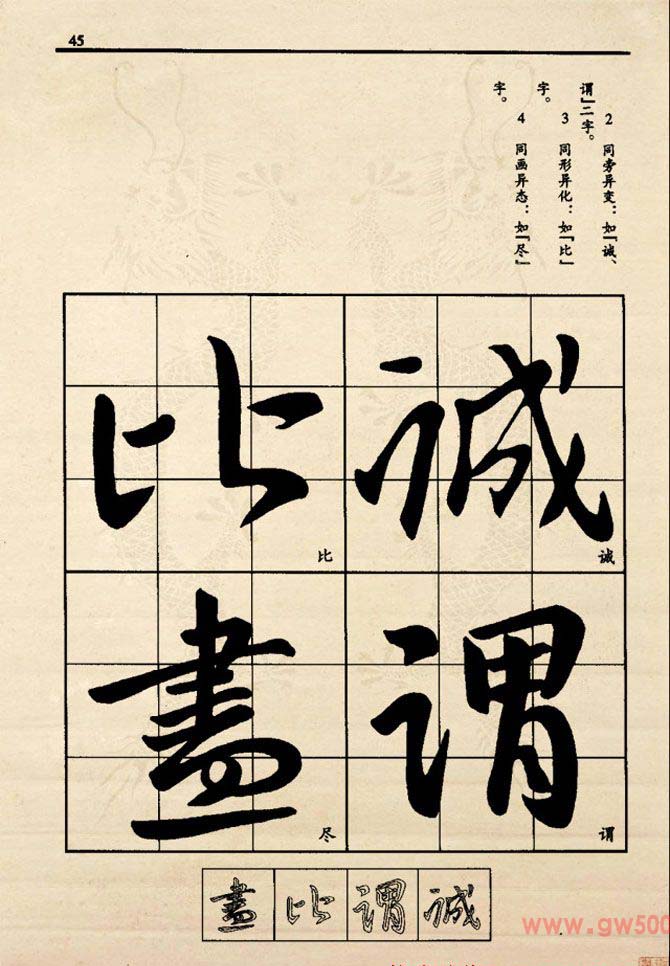 45
2 同旁异变：如『诚、
谓』二字。
3 同形异化：如『比』
字。
4 同画异态：如『尽』
字。
誠
诚
謂
谓
比
比
盡
尽
盡比謂誠
www.gw500